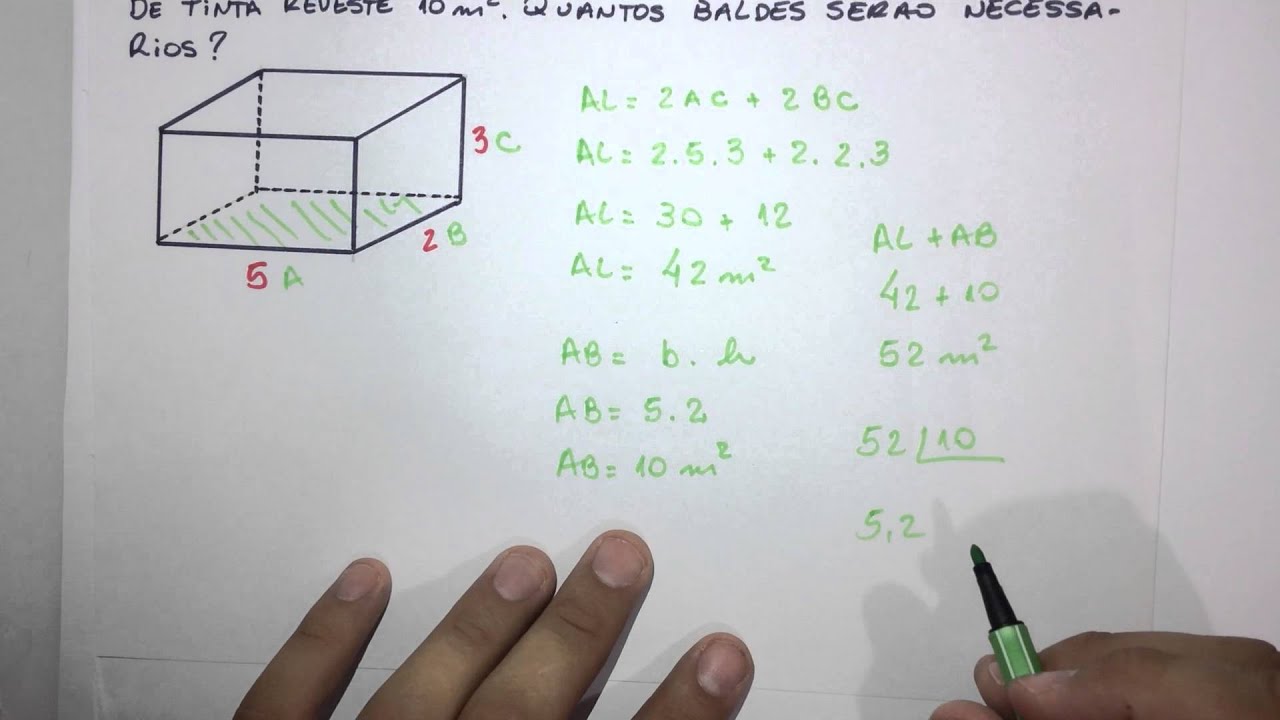 DE TINTA REVESTE 10m². QUANTOS BALDES SERAO NECESSA-
RIOS?
3 C
2 B
5 A
AL = 2AC + 2BC
AL = 2.5.3 + 2.2.3
AL = 30 + 12
AL = 42 m²
AB = b . h
AB = 5.2
AB = 10 m²
AL + AB
42 + 10
52 m²
52 10
5,2